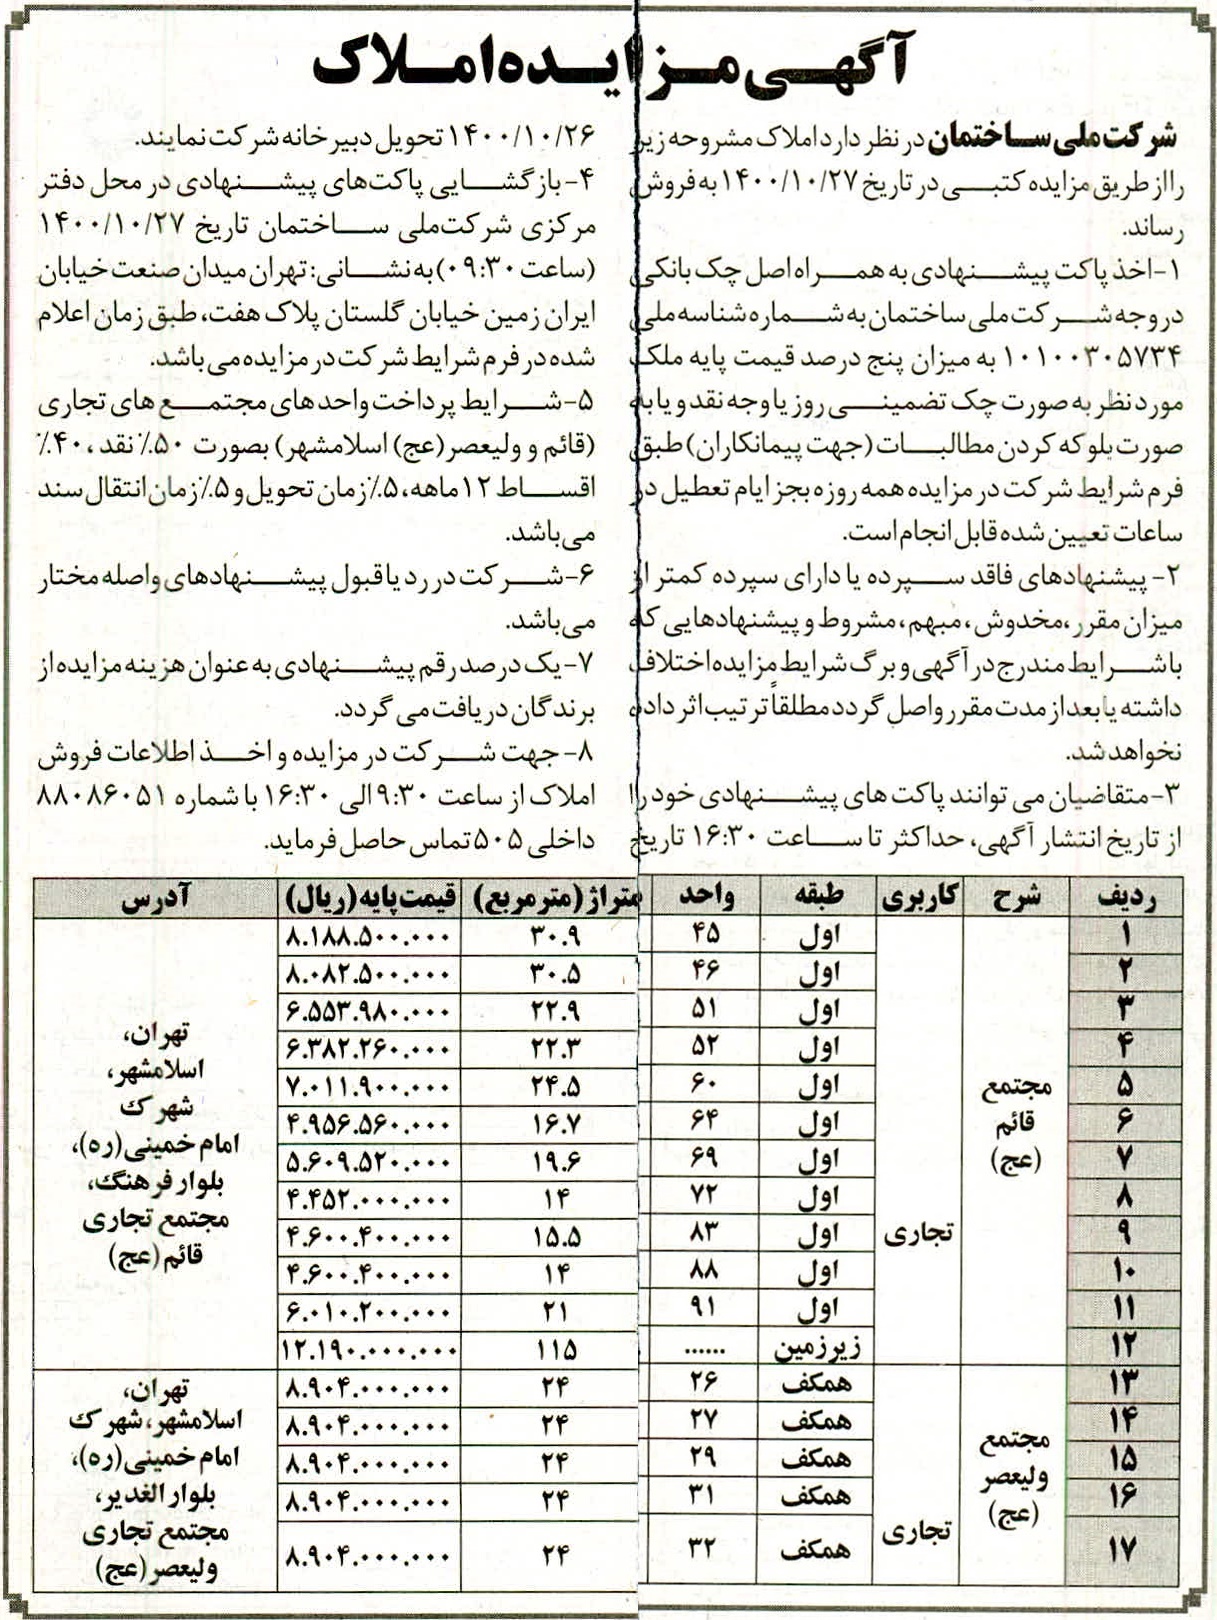 آگهی مزایده املاک
شرکت ملی ساختمان در نظر دارد املاک مشروحه زیر
را از طریق مزایده کتبی در تاریخ ۱۴۰۰/۱۰/۲۷ به فروش
رساند.
۱- اخذ پاکت پیشنهادی به همراه اصل چک بانکی
در وجه شرکت ملی ساختمان به شماره شناسه ملی
۱۰۱۰۰۳۰۵۷۳۴ به میزان پنج درصد قیمت پایه ملک
مورد نظر به صورت چک تضمینی روز یا وجه نقد و یا به
صورت بلوکه کردن مطالبات (جهت پیمانکاران) طبق
فرم شرایط شرکت در مزایده همه روزه بجز ایام تعطیل در
ساعات تعیین شده قابل انجام است.
۲- پیشنهادهای فاقد سپرده یا دارای سپرده کمتر از
میزان مقرر، مخدوش، مبهم، مشروط و پیشنهادهایی که
با شرایط مندرج در آگهی و برگ شرایط مزایده اختلاف
داشته یا بعد از مدت مقرر واصل گردد مطلقاً ترتیب اثر داده
نخواهد شد.
۳- متقاضیان می توانند پاکت های پیشنهادی خود را
از تاریخ انتشار آگهی، حداکثر تا ساعت ۱۶:۳۰ تاریخ
۱۴۰۰/۱۰/۲۶ تحویل دبیرخانه شرکت نمایند.
۴- بازگشایی پاکت‌های پیشنهادی در محل دفتر
مرکزی شرکت ملی ساختمان تاریخ ۱۴۰۰/۱۰/۲۷
(ساعت ۰۹:۳۰) به نشانی: تهران میدان صنعت خیابان
ایران زمین خیابان گلستان پلاک هفت، طبق زمان اعلام
شده در فرم شرایط شرکت در مزایده می باشد.
۵- شرایط پرداخت واحدهای مجتمع های تجاری
(قائم و ولیعصر(عج) اسلامشهر) بصورت ۵۰٪ نقد، ۴۰٪
اقساط ۱۲ ماهه، ۵٪ زمان تحویل و ۵٪ زمان انتقال سند
می باشد.
۶- شرکت در رد یا قبول پیشنهادهای واصله مختار
می باشد.
۷- یک درصد رقم پیشنهادی به عنوان هزینه مزایده از
برندگان دریافت می گردد.
۸- جهت شرکت در مزایده و اخذ اطلاعات فروش
املاک از ساعت ۹:۳۰ الی ۱۶:۳۰ با شماره ۸۸۰۸۶۰۵۱
داخلی ۵۰۵ تماس حاصل فرماید.
ردیف شرح کاربری طبقه واحد متراژ (مترمربع) قیمت پایه (ریال) آدرس
۱ اول ۴۵ ۳۰.۹ ۸.۱۸۸.۵۰۰.۰۰۰
۲ اول ۴۶ ۳۰.۵ ۸.۰۸۲.۵۰۰.۰۰۰
۳ اول ۵۱ ۲۲.۹ ۶.۵۵۳.۹۸۰.۰۰۰
۴ اول ۵۲ ۲۲.۳ ۶.۳۸۲.۲۶۰.۰۰۰
۵ اول ۶۰ ۲۴.۵ ۷.۰۱۱.۹۰۰.۰۰۰
۶ اول ۶۴ ۱۶.۷ ۴.۹۵۶.۵۶۰.۰۰۰
۷ اول ۶۹ ۱۹.۶ ۵.۶۰۹.۵۲۰.۰۰۰
۸ اول ۷۲ ۱۴ ۴.۴۵۲.۰۰۰.۰۰۰
۹ اول ۸۳ ۱۵.۵ ۴.۶۰۰.۴۰۰.۰۰۰
۱۰ اول ۸۸ ۱۴ ۴.۶۰۰.۴۰۰.۰۰۰
۱۱ اول ۹۱ ۲۱ ۶.۰۱۰.۲۰۰.۰۰۰
۱۲ زیرزمین ...... ۱۱۵ ۱۲.۱۹۰.۰۰۰.۰۰۰
مجتمع
قائم
(عج)
تجاری
تهران،
اسلامشهر،
شهرک
امام خمینی(ره)،
بلوار فرهنگ،
مجتمع تجاری
قائم (عج)
۱۳ همکف ۲۶ ۲۴ ۸.۹۰۴.۰۰۰.۰۰۰
۱۴ همکف ۲۷ ۲۴ ۸.۹۰۴.۰۰۰.۰۰۰
۱۵ همکف ۲۹ ۲۴ ۸.۹۰۴.۰۰۰.۰۰۰
۱۶ همکف ۳۱ ۲۴ ۸.۹۰۴.۰۰۰.۰۰۰
۱۷ همکف ۳۲ ۲۴ ۸.۹۰۴.۰۰۰.۰۰۰
مجتمع
ولیعصر
(عج)
تجاری
تهران،
اسلامشهر، شهرک
امام خمینی(ره)،
بلوار الغدیر،
مجتمع تجاری
ولیعصر(عج)